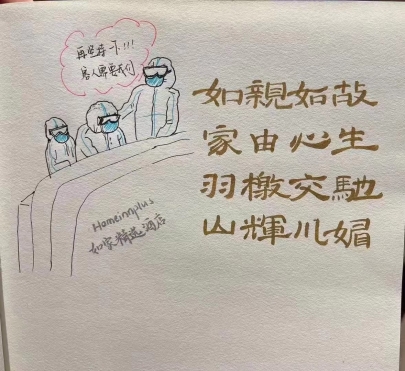 再坚持一下!!!
客人需要我们
Homeinnplus
如家精选酒店
如親如故
家由心生
羽檄交馳
山輝川媚